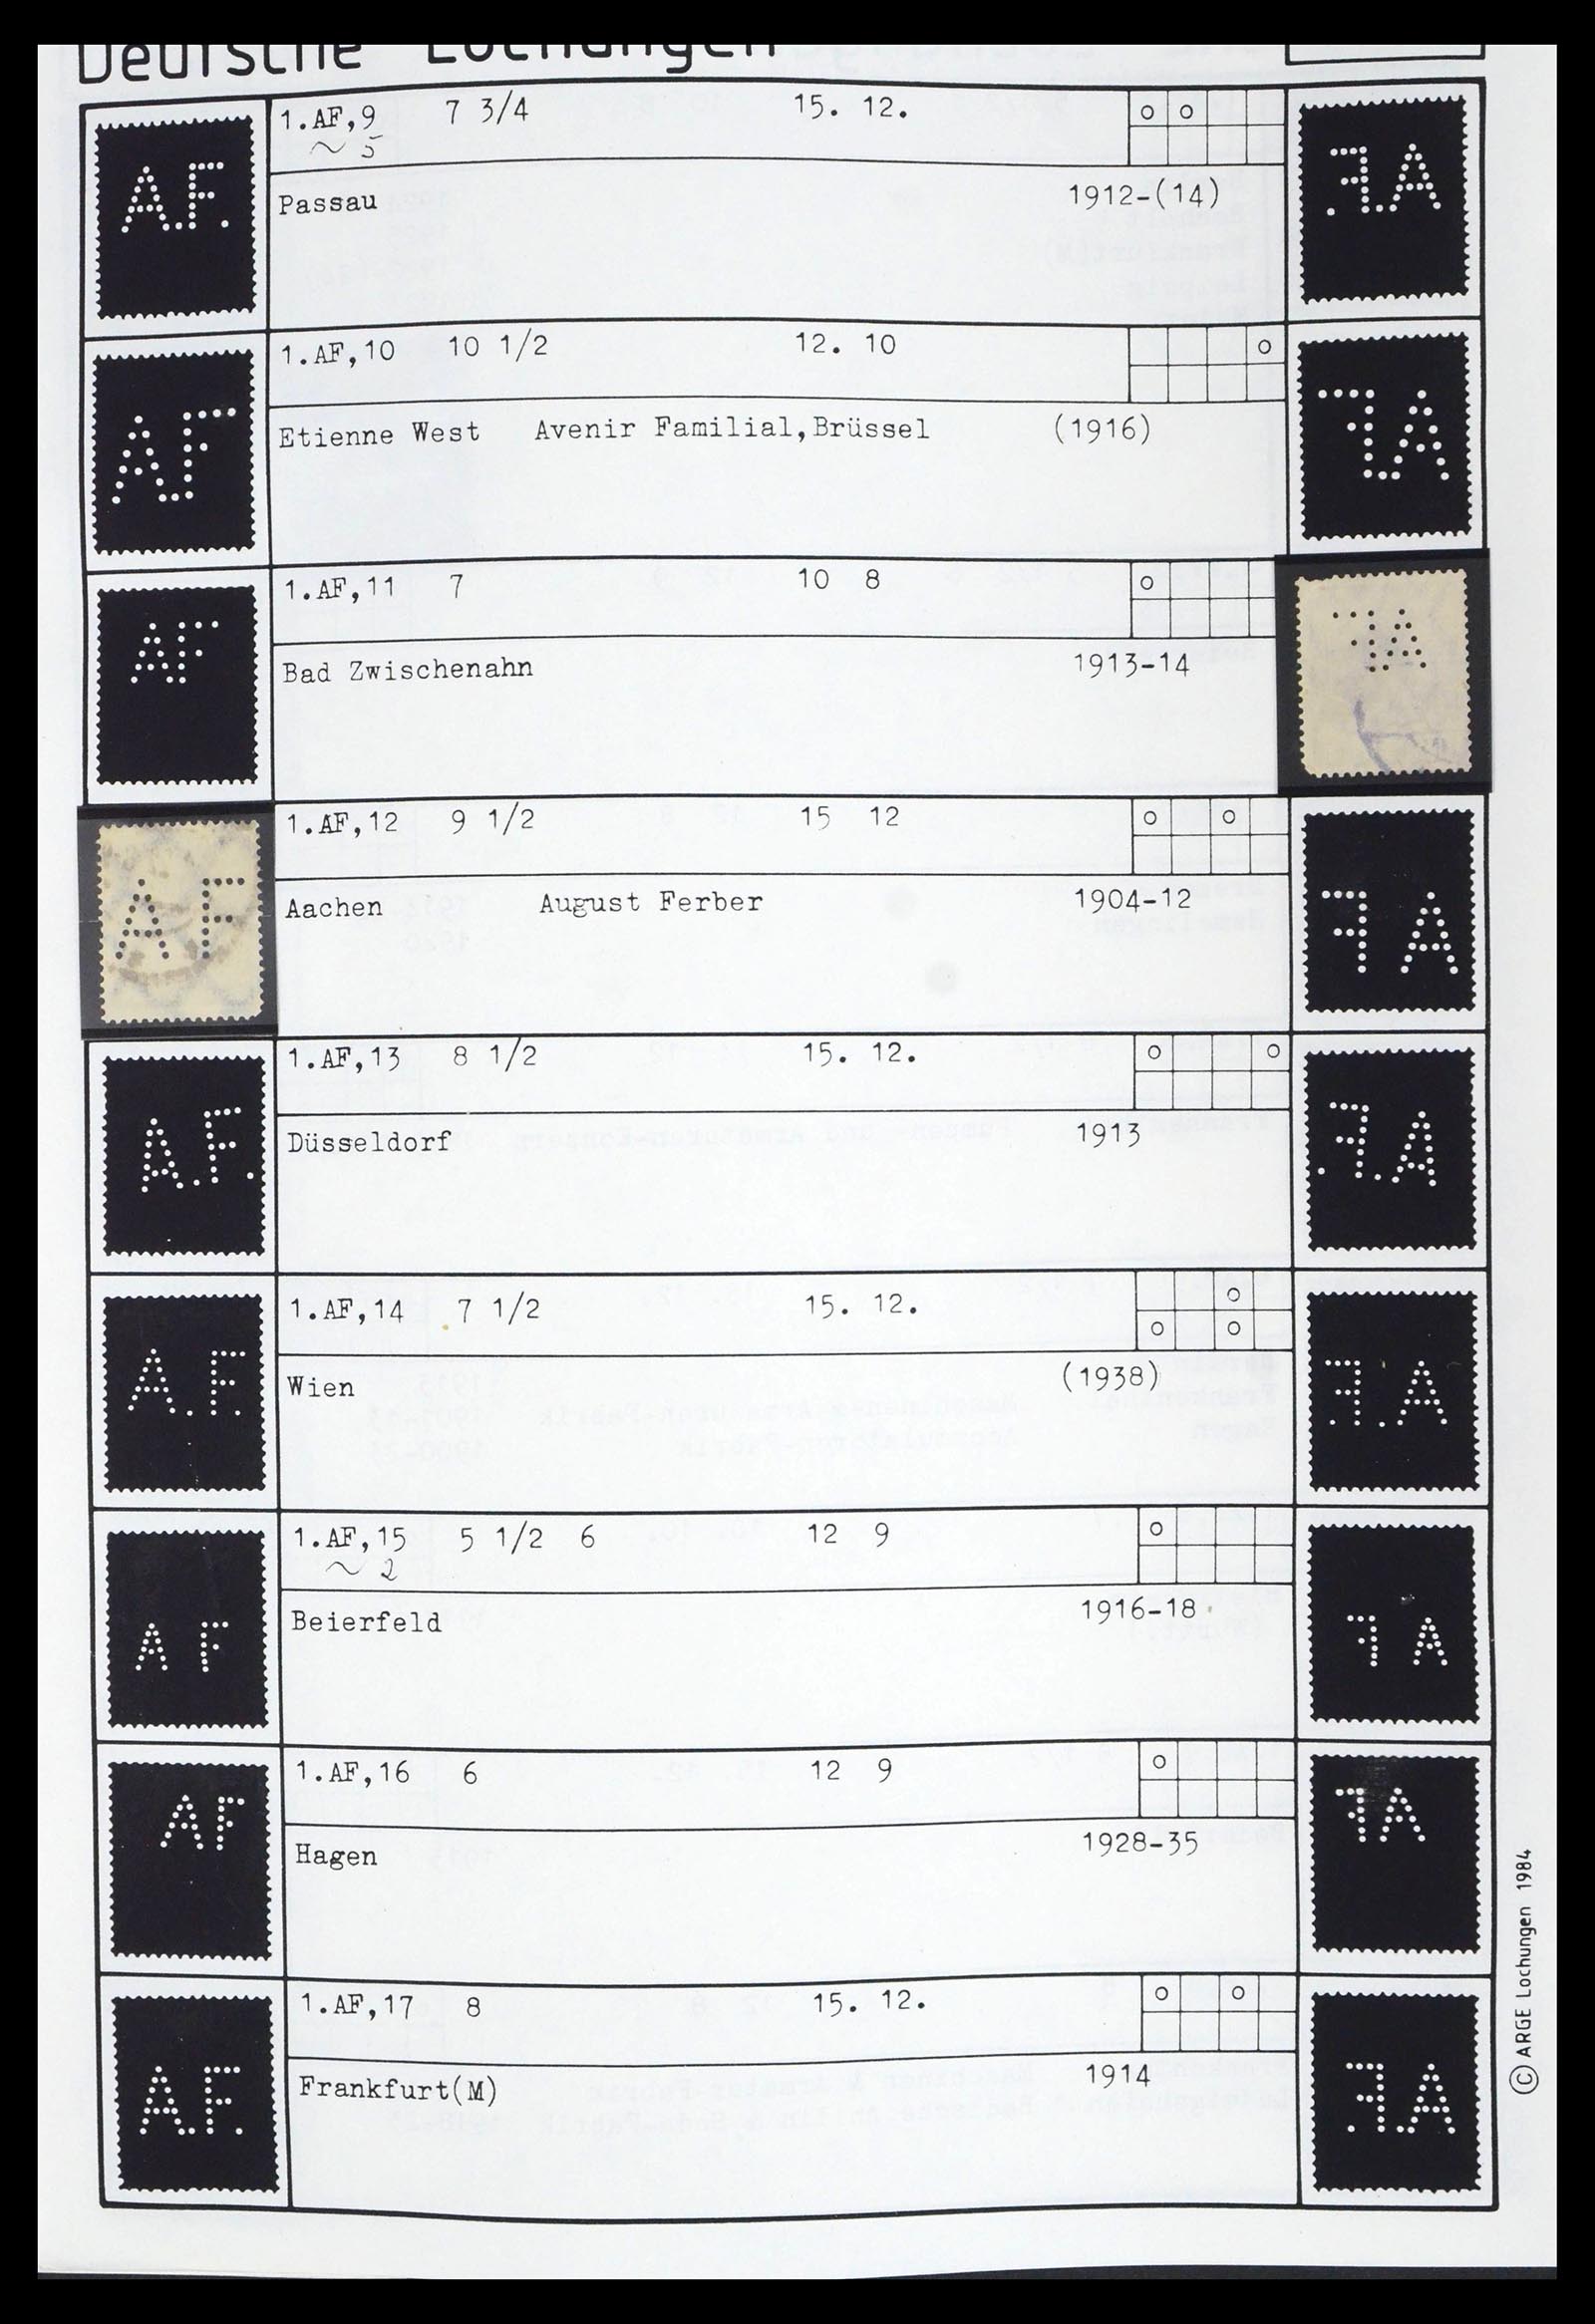 Deutsche Lochungen
A.F. 1.AF,9 7 3/4 15. 12. A.F.
~ 5
Passau 1912-(14)
AF 1.AF,10 10 1/2 12. 10 AF
Etienne West Avenir Familial,Brüssel (1916)
AF 1.AF,11 7 10 8 AF
Bad Zwischenahn 1913-14
AF 1.AF,12 9 1/2 15 12 AF
Aachen August Ferber 1904-12
A.F. 1.AF,13 8 1/2 15. 12. A.F.
Düsseldorf 1913
A.F. 1.AF,14 7 1/2 15. 12. A.F.
Wien (1938)
A F 1.AF,15 5 1/2 6 12 9 A F
~ 2
Beierfeld 1916-18
AF 1.AF,16 6 12 9 AF
Hagen 1928-35
A.F. 1.AF,17 8 15. 12. A.F.
Frankfurt(M) 1914
© ARGE Lochungen 1984